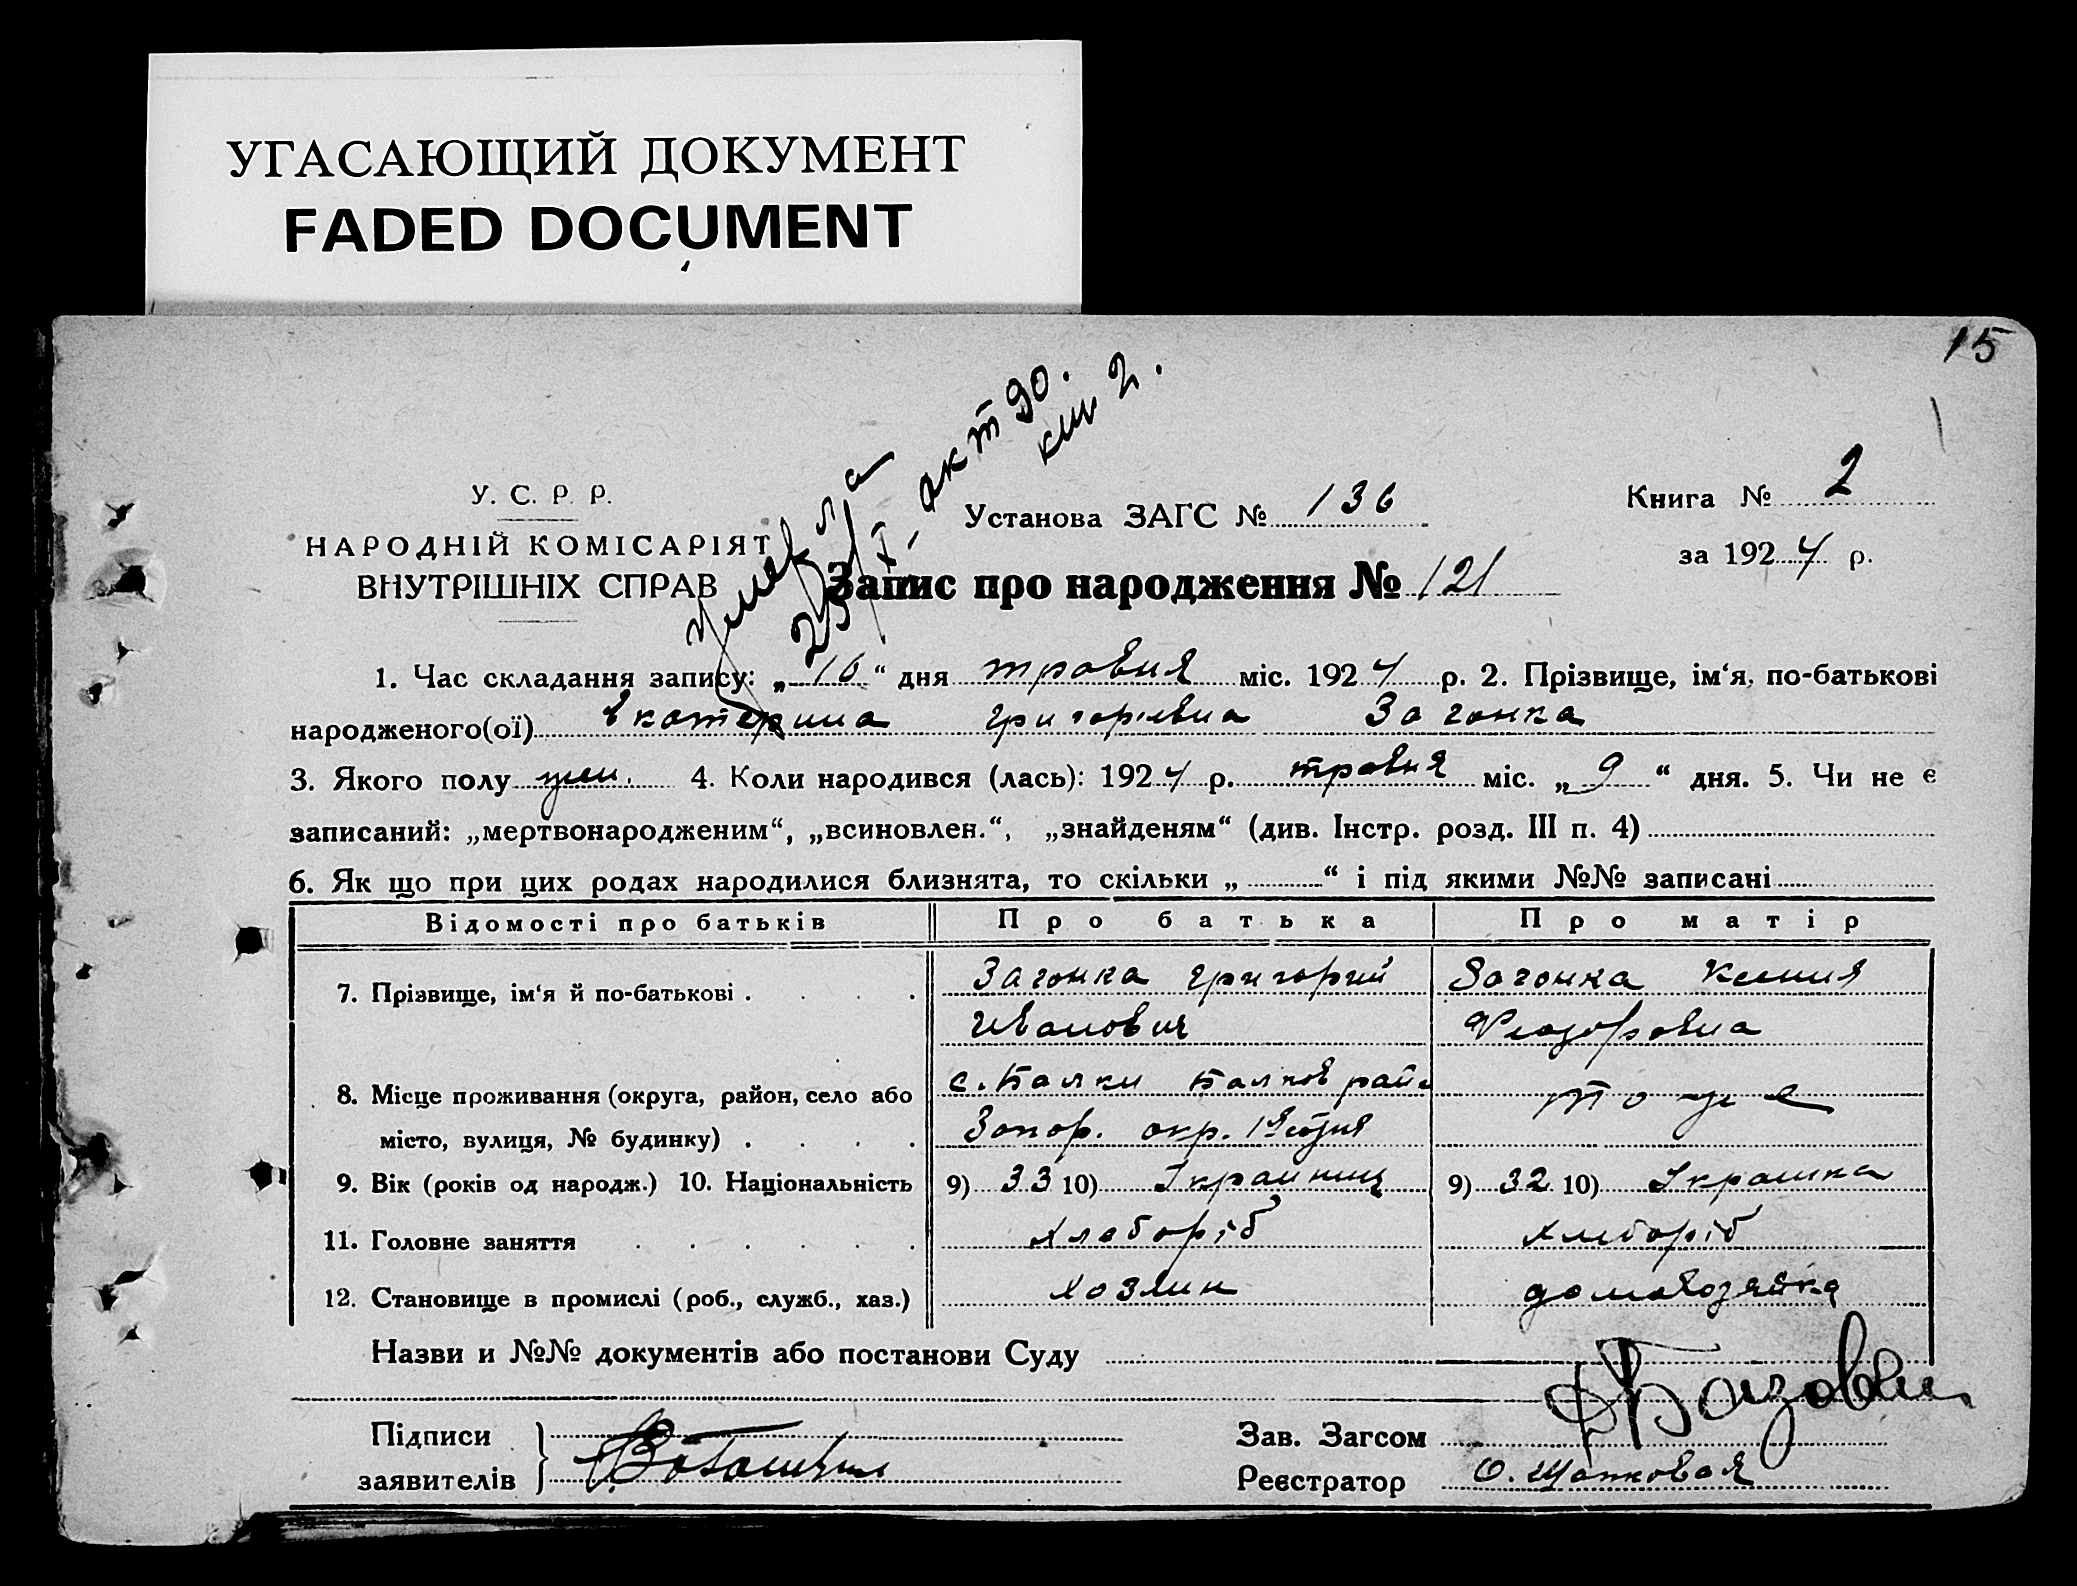 УГАСАЮЩИЙ ДОКУМЕНТ
FADED DOCUMENT
15
умерла
23/X - акт 90.
кн 2.
У. С. Р. Р.
НАРОДНІЙ КОМІСАРІЯТ
ВНУТРІШНІХ СПРАВ
Установа ЗАГС № 136
Книга № 2
за 1924 р.
Запис про народження № 121
1. Час складання запису: „16“ дня травня міс. 1924 р. 2. Прізвище, ім‘я, по-батькові
народженого(ої) Екатерина Григорьевна Загонка
3. Якого полу жен. 4. Коли народився (лась): 1924 р. травня міс. „9“ дня. 5. Чи не є
записаний: „мертвонародженим“, „всиновлен.“, „знайденям“ (див. Інстр. розд. III п. 4)
6. Як що при цих родах народилися близнята, то скільки „ “ і під якими №№ записані
Відомості про батьків Про батька Про матір
7. Прізвище, ім‘я й по-батькові . . . . Загонка Григорий Загонка Ксения
Иванович Феодоровна
8. Місце проживання (округа, район, село або с. Балки Балков рай тоже
місто, вулиця, № будинку) . . . . Запор. окр.
9. Вік (років од народж.) 10. Національність 9) 33 10) Украинец 9) 32 10) Украинка
11. Головне заняття . . . . . . Хлебороб хлебороб
12. Становище в промислі (роб., служб., хаз.) хозяин домохозяйка
Назви и №№ документів або постанови Суду
Підписи
заявителів
Зав. Загсом
Реєстратор О. Шапковая